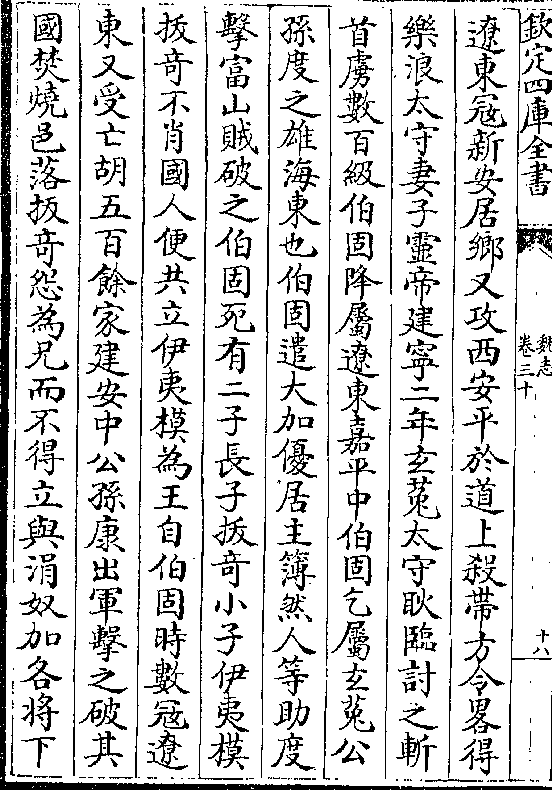 欽定四庫全書
魏志
卷三十
十八
遼東冦新安居鄉又攻西安平於道上殺帶方令畧得
樂浪太守妻子靈帝建寧二年玄菟太守耿臨討之斬
首虜數百級伯固降屬遼東嘉平中伯固乞屬玄菟公
孫度之雄海東也伯固遣大加優居主簿然人等助度
擊富山賊破之伯固死有二子長子拔竒小子伊夷模
拔竒不肖國人便共立伊夷模為王自伯固時數冦遼
東又受亡胡五百餘家建安中公孫康出軍擊之破其
國焚燒邑落拔竒怨為兄而不得立與涓奴加各將下